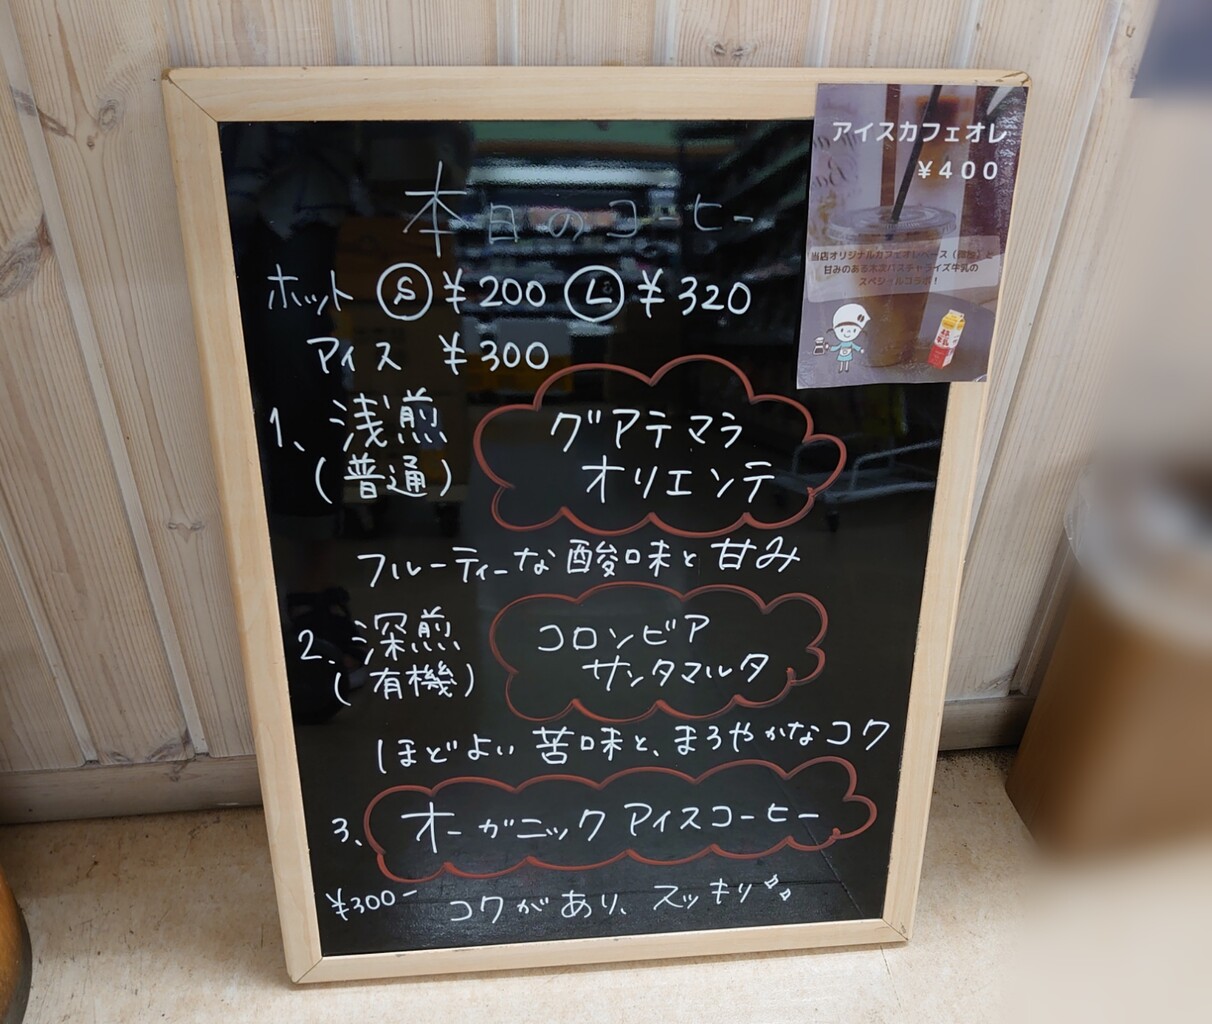 本日のコーヒー
ホット Ⓢ ¥200 Ⓛ ¥320
アイス ¥300
1、浅煎
(普通)
グアテマラ
オリエンテ
フルーティーな酸味と甘み
2、深煎
(有機)
コロンビア
サンタマルタ
ほどよい苦味と、まろやかなコク
3、オーガニックアイスコーヒー
¥300- コクがあり、スッキリ
アイスカフェオレ
¥400
当店オリジナルカフェオレベース(微糖)と
甘みのある木次パスチャライズ牛乳の
スペシャルコラボ!